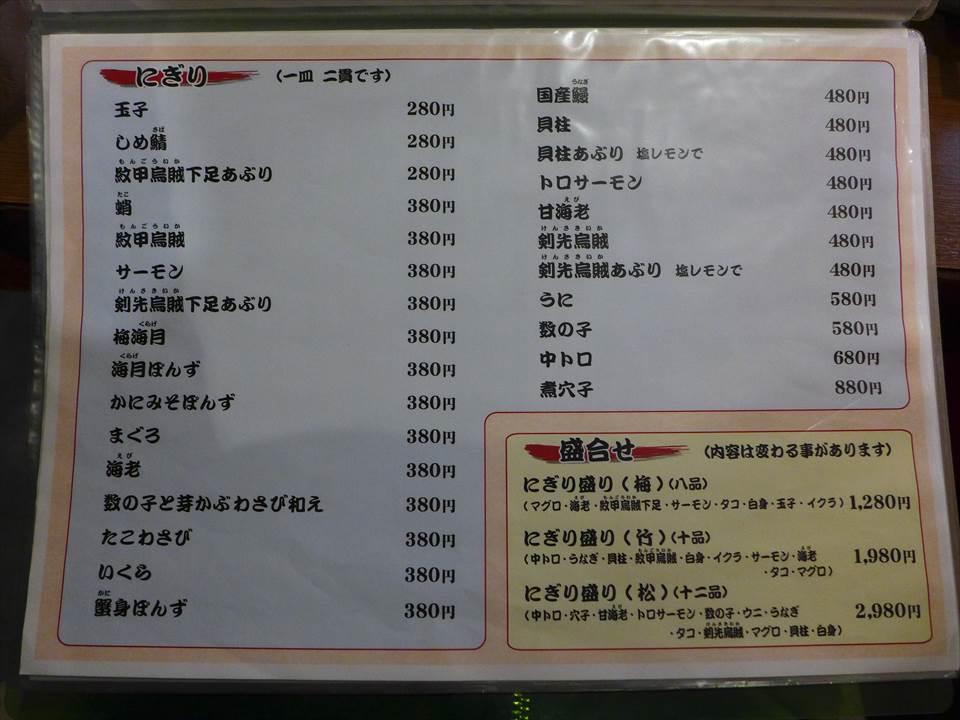 にぎり （一皿 二貫です）
玉子 280円
しめ鯖 280円
さば
紋甲烏賊下足あぶり 280円
もんごういか
蛸 380円
たこ
紋甲烏賊 380円
もんごういか
サーモン 380円
剣先烏賊下足あぶり 380円
けんさきいか
梅海月 380円
くらげ
海月ぽんず 380円
くらげ
かにみそぽんず 380円
まぐろ 380円
海老 380円
えび
数の子と芽かぶわさび和え 380円
たこわさび 380円
いくら 380円
蟹身ぽんず 380円
かに
国産鰻 480円
うなぎ
貝柱 480円
貝柱あぶり 塩レモンで 480円
トロサーモン 480円
甘海老 480円
えび
剣先烏賊 480円
けんさきいか
剣先烏賊あぶり 塩レモンで 480円
けんさきいか
うに 580円
数の子 580円
中トロ 680円
煮穴子 880円
盛合せ （内容は変わる事があります）
にぎり盛り（梅）（八品）
（マグロ・海老・紋甲烏賊下足・サーモン・タコ・白身・玉子・イクラ） 1,280円
えび もんごういか
にぎり盛り（竹）（十品）
（中トロ・うなぎ・貝柱・紋甲烏賊・白身・イクラ・サーモン・海老 1,980円
もんごういか えび
・タコ・マグロ）
にぎり盛り（松）（十二品）
（中トロ・穴子・甘海老・トロサーモン・数の子・ウニ・うなぎ 2,980円
えび
・タコ・剣先烏賊・マグロ・貝柱・白身）
けんさきいか